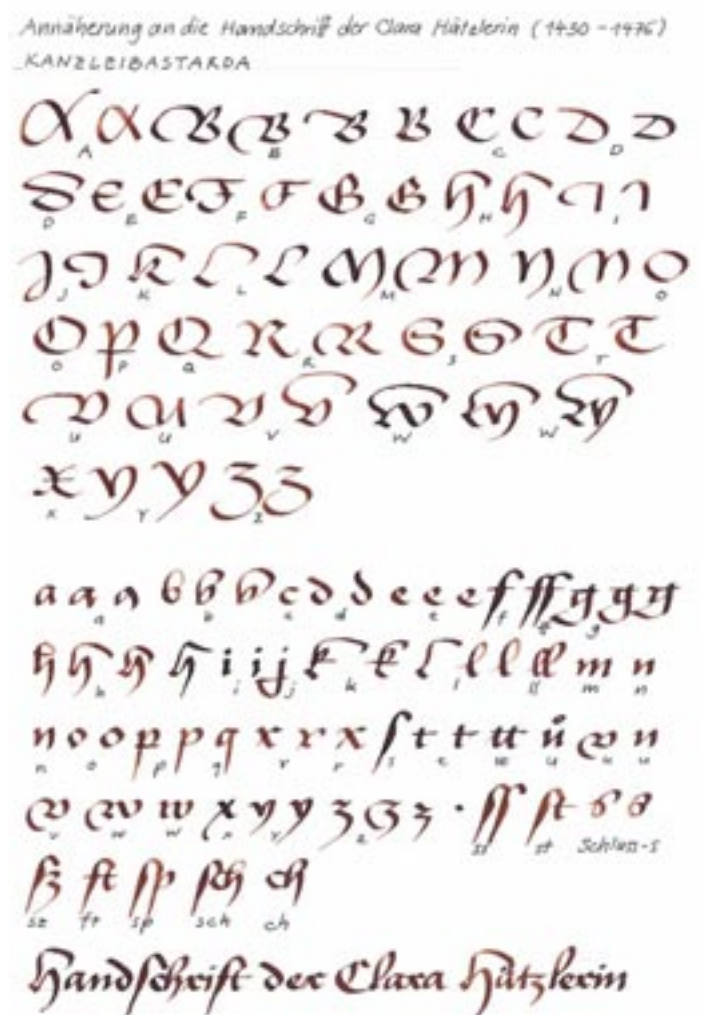 Annäherung an die Handschrift der Clara Hätzlerin (1430-1476)
KANZLEIBASTARDA
A A B B B B C C D D
A B C D
D E E F F G G H H I I
D E F G H I
J J K L L M M N N O
J K L M N O
O P Q R R S S T T
O P Q R S T
U U V V W W W
U U V W W
X Y Y Z Z
X Y Z
a a a b b b c d d e e e f ff g g g
a b c d e f ff g
h h h h i i j k k l l l ll m n
h i j k l ll m n
n o o p p q r r r ſ t t tt ů u u
n o p q r r s t tt u u u
v w w x y y z z z · ſſ ſt s s
v w w x y z ss st Schluss-s
ſz ft ſp ſch ch
sz ft sp sch ch
Handſchrift der Clara Hätzlerin